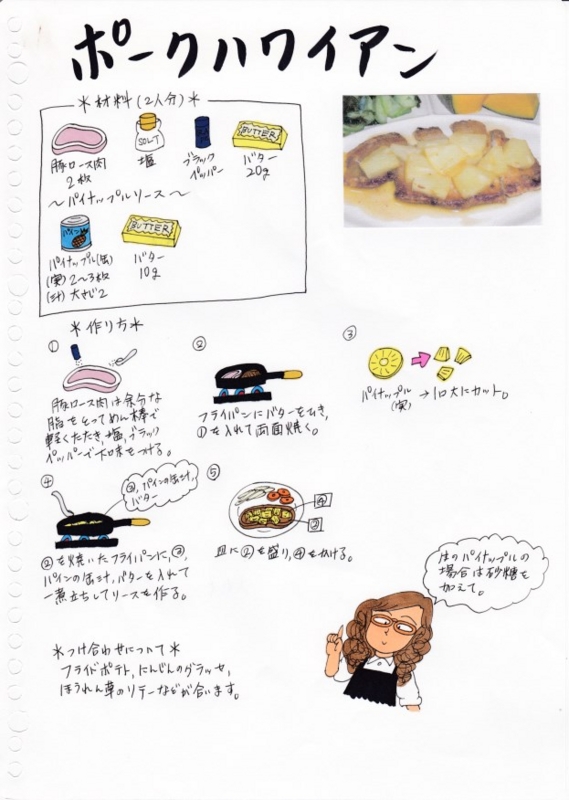 ポークハワイアン
＊材料(2人分)＊
SOLT
BUTTER
豚ロース肉
2枚
塩
ブラック
ペッパー
バター
20g
〜パイナップルソース〜
パイン
BUTTER
パイナップル(缶)
(実) 2〜3枚
(汁) 大さじ2
バター
10g
＊作り方＊
①
豚ロース肉は余分な
脂をとってめん棒で
軽くたたき、塩、ブラック
ペッパーで下味をつける。
②
フライパンにバターをひき、
①を入れて両面焼く。
③
パイナップル
(実)
→1口大にカット。
④
③、パインの缶汁、
バター
②を焼いたフライパンに、③、
パインの缶汁、バターを入れて
一煮立ちしてソースを作る。
⑤
④
②
皿に②を盛り、④をかける。
生のパイナップルの
場合は砂糖を
加えて。
＊つけ合わせについて＊
フライドポテト、にんじんのグラッセ、
ほうれん草のソテーなどが合います。